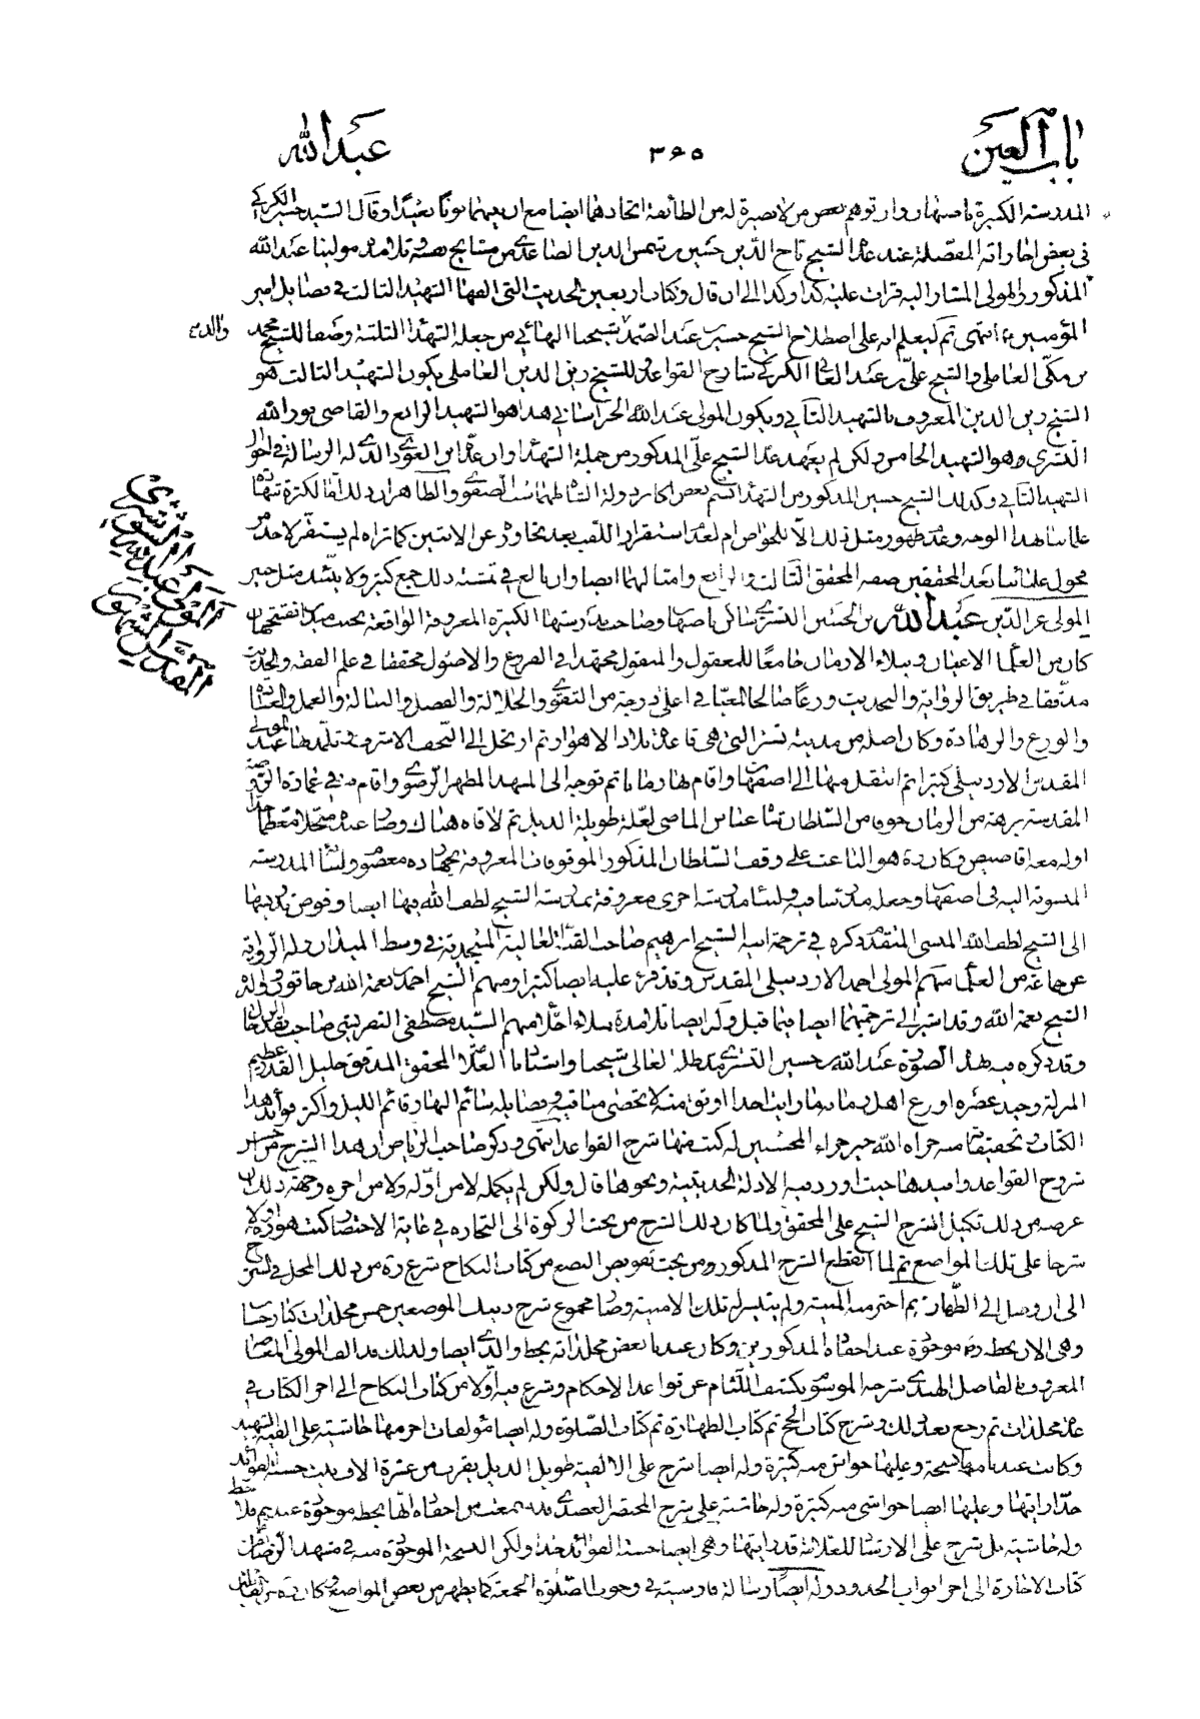 باب العين ٣٦٥ عبد الله
المدرسة الكبيرة باصفهان وان توهم بعض من لا بصيرة له من الطائفة اتحادهما ايضا مع ان بينهما بونا بعيدا وقال السيد حسين الكركي
في بعض اجازاته المفصلة عند عد الشيخ تاج الدين حسين بن شمس الدين الصاعدي من مشايخ نفسه وتلامذه مولينا عبد الله
المذكور والمولى المشار اليه قرات عليه كذا وكذا الى ان قال وكتاب اربعين الحديث التي الفها الشهيد الثالث في فضايل امير
المؤمنين انتهى ثم ليعلم انه على اصطلاح الشيخ حسين بن عبد الصمد شيخنا البهائي من جعله الشهداء الثلثة وصفا للشيخ محمد
والدي
بن مكي العاملي والشيخ علي بن عبد العالي الكركي شارح القواعد وللشيخ زين الدين العاملي يكون الشهيد الثالث هو
الشيخ زين الدين المعروف بالشهيد الثاني ويكون المولى عبد الله الخراساني هذا هو الشهيد الرابع والقاضي نور الله
التستري هو الشهيد الخامس ولكن لم يعهد عد الشيخ علي المذكور من جملة الشهداء وان عده ابن العودي الذي له الرسالة في احوال
الشهيد الثاني وكذلك الشيخ حسين المذكور من الشهداء بسم بعض اكابر دولة الشاه طهماسب الصفوي والظاهر ان ذلك
على هذا الوجه وعدم ظهور مثل ذلك الا للخواص ام لعدم استقرار اللقب بعد تجاوزه عن الاثنين كما تراه لم يستقر لاحد من
فحول علمائنا بعد المحققين صفة المحقق الثالث والرابع وامثالهما ايضا وان بالغ في تسمية ذلك جمع كثير ولا ينبئك مثل خبير
المولى عز الدين عبد الله بن الحسين التستري ساكن اصفهان وصاحب مدرستها الكبيرة المعروفة الواقعة بحيث
المولى عبد الله التستري
كان من العلماء الاعيان ونبلاء الازمان جامعا للمعقول والمنقول مجتهدا في الفروع والاصول محققا في علم الفقه والحديث
مدققا في طريق الرواية والتحديث ورعا صالحا متعبدا في اعلى درجة من التقوى والجلالة والفضل والنبالة والعمل والعبادة
والورع والزهادة وكان اصله من مدينة تستر التي هي قاعدة بلاد الاهواز ثم ارتحل الى النجف الاشرف وتلمذ بها عند المولى
المقدس الاردبيلي كثيرا ثم انتقل منها الى اصفهان واقام بها زمانا ثم توجه الى المشهد المطهر الرضوي واقام مدة في عمارة الروضة
المقدسة برهة من الزمان خوفا من السلطان شاه عباس الماضي لعلة طويلة الذيل ثم لاقاه هناك وصار عنده مبجلا معظما جدا
وله معه اقاصيص وكان ره هو الباعث على وقف السلطان المذكور الموقوفات المعروفة بجهارده معصوم ولبناء المدرسة
المنسوبة اليه في اصفهان وجعله مدرسا فيه ولبناء مدرسة اخرى معروفة بمدرسة الشيخ لطف الله بها ايضا وفوض تدريسها
الى الشيخ لطف الله الميسي المتقدم ذكره في ترجمة ابيه الشيخ ابرهيم صاحب القبة العالية المسجدية في وسط الميدان وله الرواية
عن جماعة من العلماء منهم المولى احمد الاردبيلي المقدس وقد قرء عليه ايضا كثيرا ومنهم الشيخ احمد بن نعمة الله بن خاتون وله
الشيخ نعمة الله وقد اشير الى ترجمتهما ايضا فيما قبل وله ايضا تلامذة نبلاء اجلاء منهم السيد مصطفى التفريشي صاحب نقد الرجال
وقد ذكره فيه بهذه الصورة عبد الله بن حسين التستري مد ظله تعالى شيخنا واستادنا العلامة المحقق المدقق جليل القدر عظيم
المنزلة وحيد عصره اورع اهل زمانه ما رايت احدا اوثق منه لا تحصى مناقبه وفضايله صائم النهار وقائم الليل واكثر فوايد هذا
الكتاب وتحقيقاته منه جزاه الله خير جزاء المحسنين له كتب منها شرح القواعد انتهى وذكر صاحب الرياض ان هذا الشرح من احسن
شروح القواعد وافيدها حيث اورد فيه الادلة الحديثية ونحوها قال ولكن لم يكمله لا من اوله ولا من اخره وجهة ذلك ان
غرضه من ذلك تكميل شرح الشيخ علي المحقق ولما كان ذلك الشرح من بحث الزكوة الى التجارة في غاية الاختصار كتب هو ره اولا
شرحا على تلك المواضع ثم لما انقطع الشرح المذكور من بحث تفويض البضع من كتاب النكاح شرع ره من ذلك المحل في الشرح
الى ان وصل الى الظهار ثم اخترمته المنية ولم يتيسر له تلك الامنية وصار مجموع شرح ذينك الموضعين خمس مجلدات كبار حسان
وهي الان بخطه ره موجودة عند احفاده المذكورين وكان عندنا بعض مجلداته بخط والدي ايضا ولذلك قد الف المولى
المعروف بالفاضل الهندي شرحه الموسوم بكشف اللثام عن قواعد الاحكام وشرع فيه اولا من كتاب النكاح الى اخر الكتاب في
عدة مجلدات ثم رجع بعد ذلك وشرح كتاب الحج ثم كتاب الطهارة ثم كتاب الصلوة وله ايضا مؤلفات اخر منها حاشية على الفية الشهيد
وكانت عندنا منها نسخة وعليها حواش منه كثيرة وله ايضا شرح على الالفية طويل الذيل يقرب من عشرة الاف بيت حسنة الفوائد
جدا رايتها وعليها ايضا حواشي منه كثيرة وله حاشية على شرح المختصر العضدي قد سمعت من احفاده انها بخطه موجودة عندهم
وله حاشية بل شرح على الارشاد للعلامة قد رايتها وهي ايضا حسنة الفوائد جدا ولكن النسخة الموجودة منه في مشهد الرضا من
كتاب الاجارة الى اخر ابواب الحدود وله ايضا رسالة فارسية في وجوب الصلوة الجمعة كما يظهر من بعض المواضع وكان